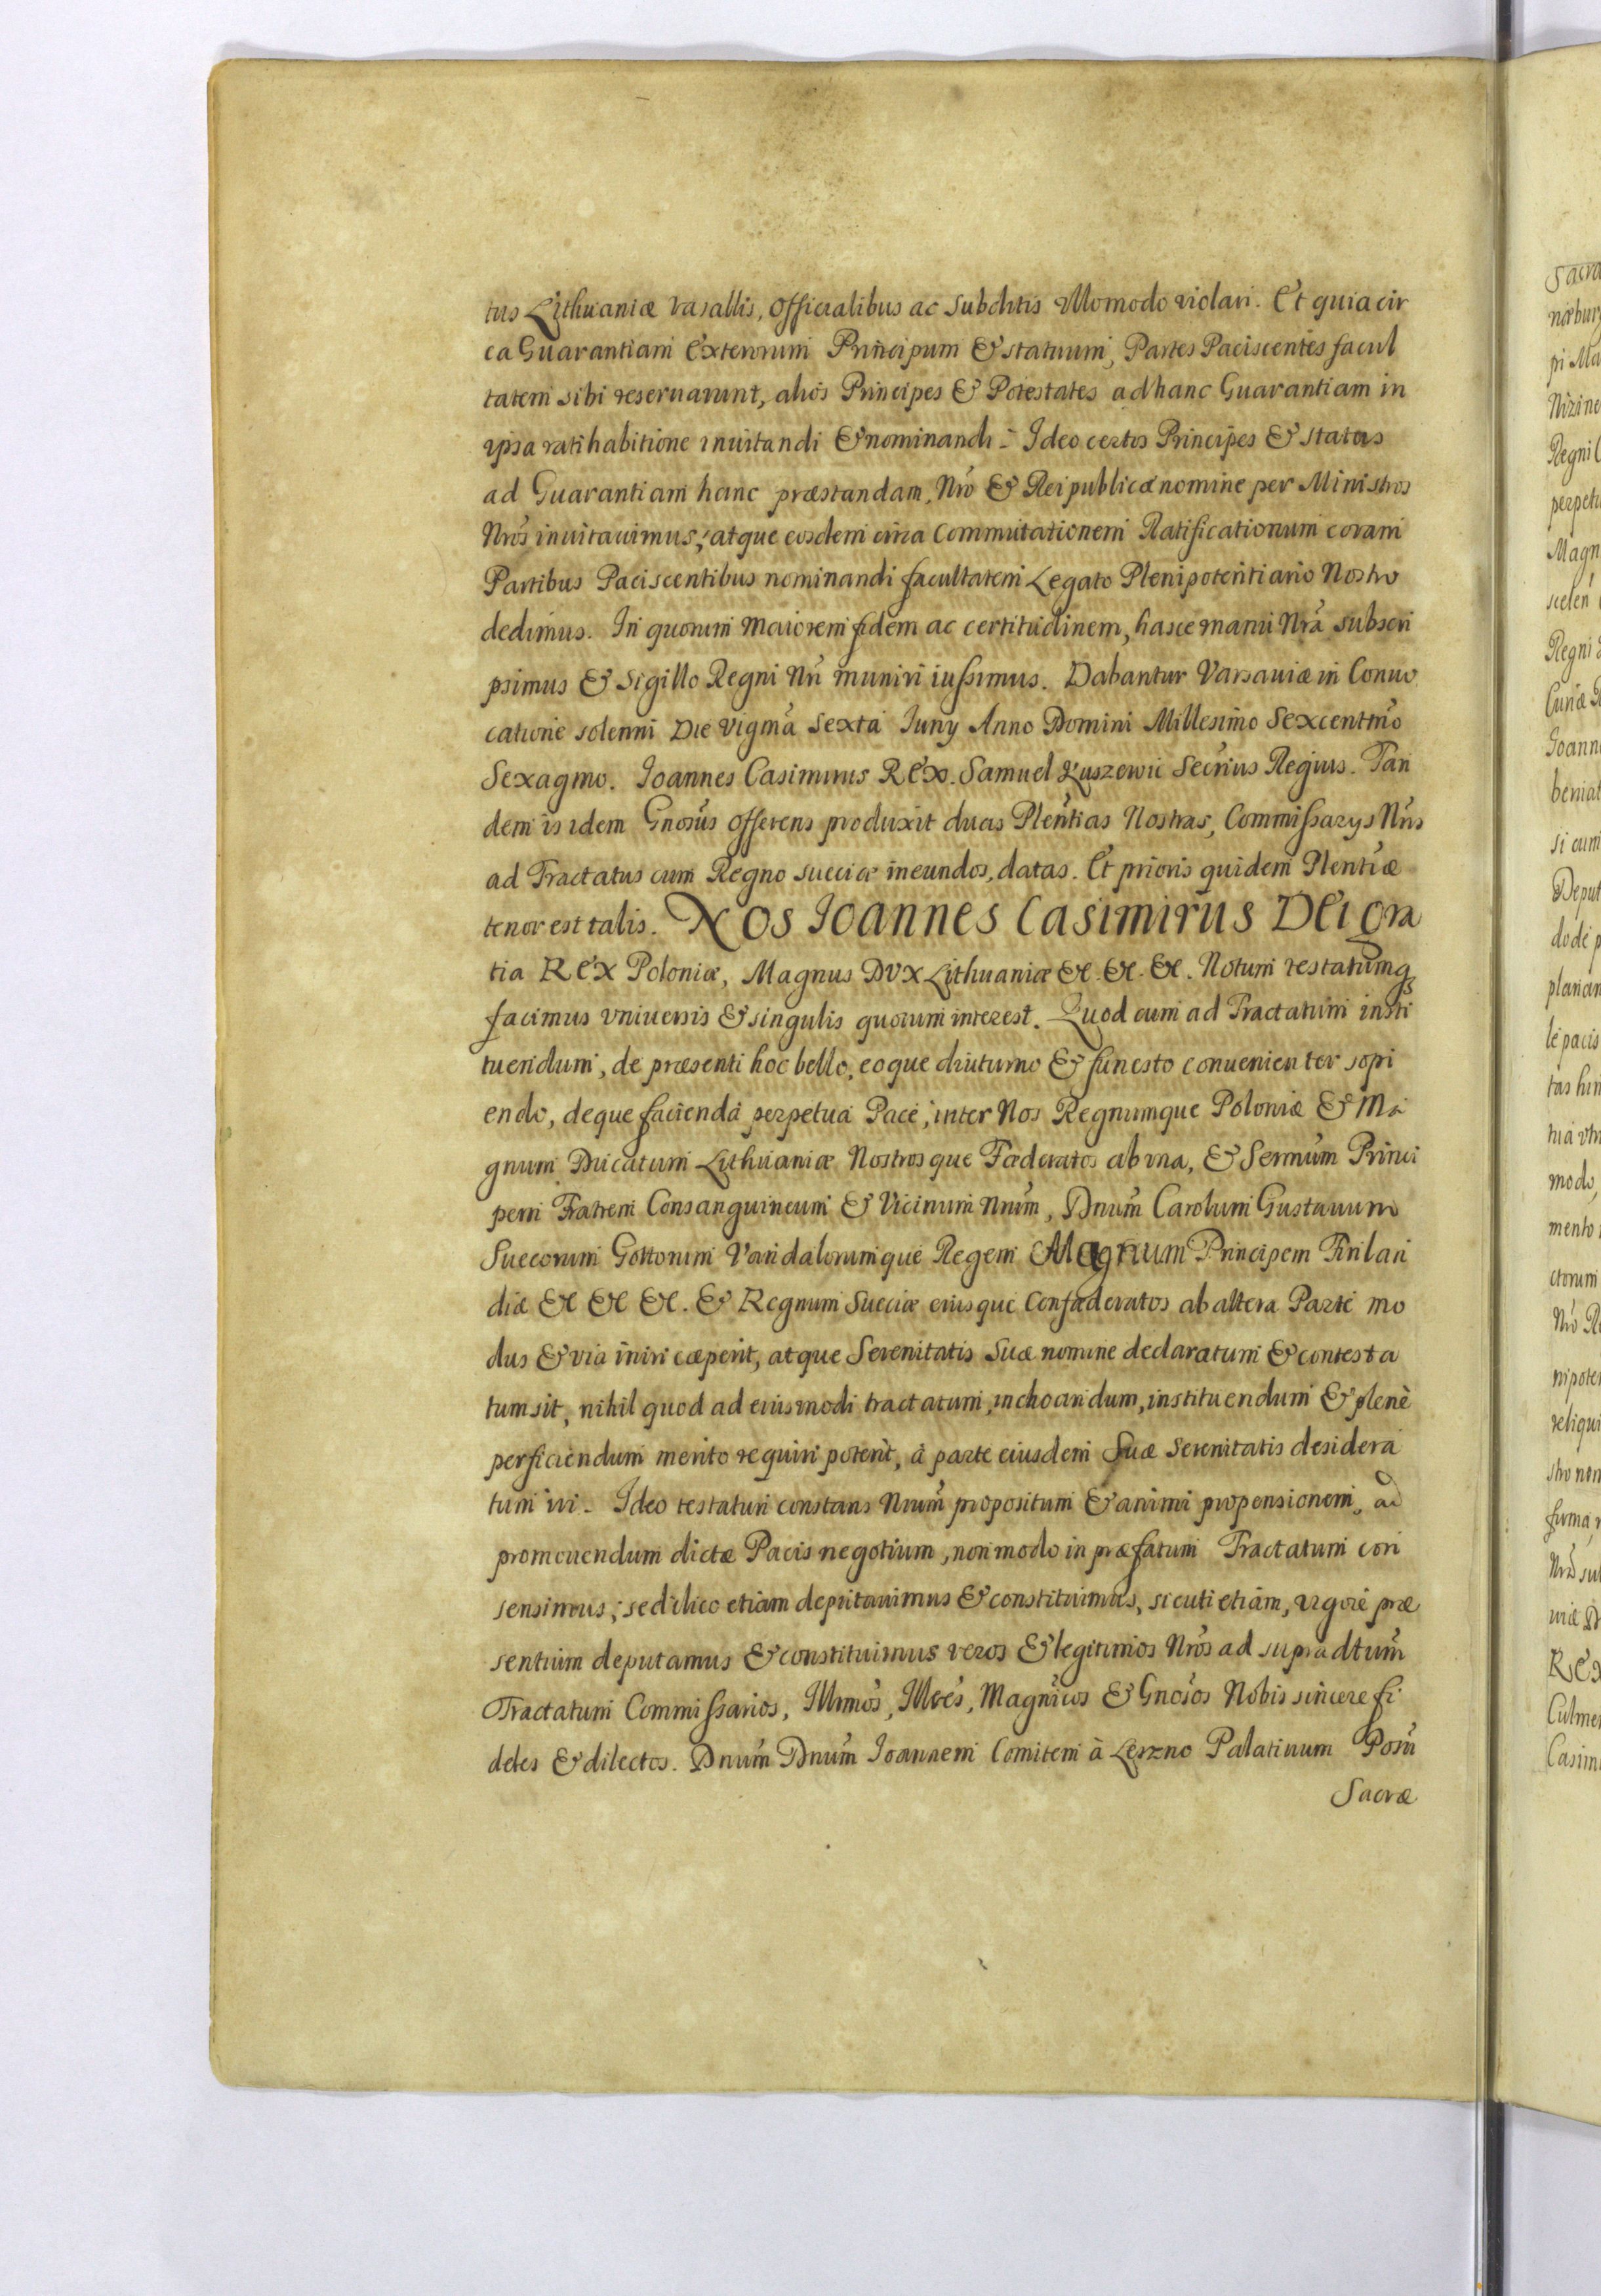 tus Lithuaniæ vasallis, officialibus ac subditis ullomodo violari. Et quia cir
ca Guarantiam Exterorum Principum & statuum, Partes Paciscentes facul
tatem sibi reseruarunt, alios Principes & Potestates ad hanc Guarantiam in
ipsa ratihabitione inuitandi & nominandi - Ideo certos Principes & status
ad Guarantiam hanc præstandam, Nrõ & Reipublicæ nomine per Ministros
Nrõs inuitauimus, atque eosdem circa Commutationem Ratificationum coram
Partibus Paciscentibus nominandi facultatem Legato Plenipotentiario Nostro
dedimus. In quorum maiorem fidem ac certitudinem, hasce manu Nrã subscri
psimus & sigillo Regni Nri muniri iussimus. Dabantur Varsauiæ in Conuo
catione solenni Die Vigmã sexta Iuny Anno Domini Millesimo Sexcentmõ
Sexagmo. Ioannes Casimirus REX. Samuel Kuszewic Secrius Regius. Tan
dem is idem Gnosus offerens produxit duas Plentias Nostras, Commissarys Nris
ad Tractatus cum Regno sueciæ ineundos, datas. Et prioris quidem Plentiæ
tenor est talis. NOS IOANNES CASIMIRUS DEI Gra
tia REX Poloniæ, Magnus DUX Lithuaniæ &c. &c. &c. Notum testatumq
facimus vniuersis & singulis quorum interest. Quod cum ad Tractatum insti
tuendum, de præsenti hoc bello, eoque diuturno & funesto conuenienter sopi
endo, deque facienda perpetua Pace, inter Nos Regnumque Poloniæ & Ma
gnum Ducatum Lithuaniæ Nostrosque Fœderatos ab vna, & Sermum Princi
pem Fratrem Consanguineum & Vicinum Nrum, Dnum Carolum Gustauum
Suecorum Gottorum Vandalorumque Regem Magnum Principem Finlan
diæ &c &c &c. & Regnum Sueciæ eiusque Confœderatos ab altera Parte mo
dus & via iniri cæperit, atque Serenitatis Suæ nomine declaratum & contesta
tum sit, nihil quod ad eiusmodi tractatum, inchoandum, instituendum & plenè
perficiendum merito requiri poterit, à parte eiusdem Suæ Serenitatis desidera
tum iri - Ideo testaturi constans Nrum propositum & animi propensionem, ad
promouendum dictæ Pacis negotium, non modo in præfatum Tractatum con
sensimus, sed ilico etiam deputauimus & constituimus, sicuti etiam, vigore præ
sentium deputamus & constituimus veros & legitimos Nrõs ad supradtum
Tractatum Commissarios, Illmos, Illres, Magnicos & Gnosos Nobis sincere fi
deles & dilectos. Dnum Dnum Ioannem Comitem à Leszno Palatinum Posn
Sacræ